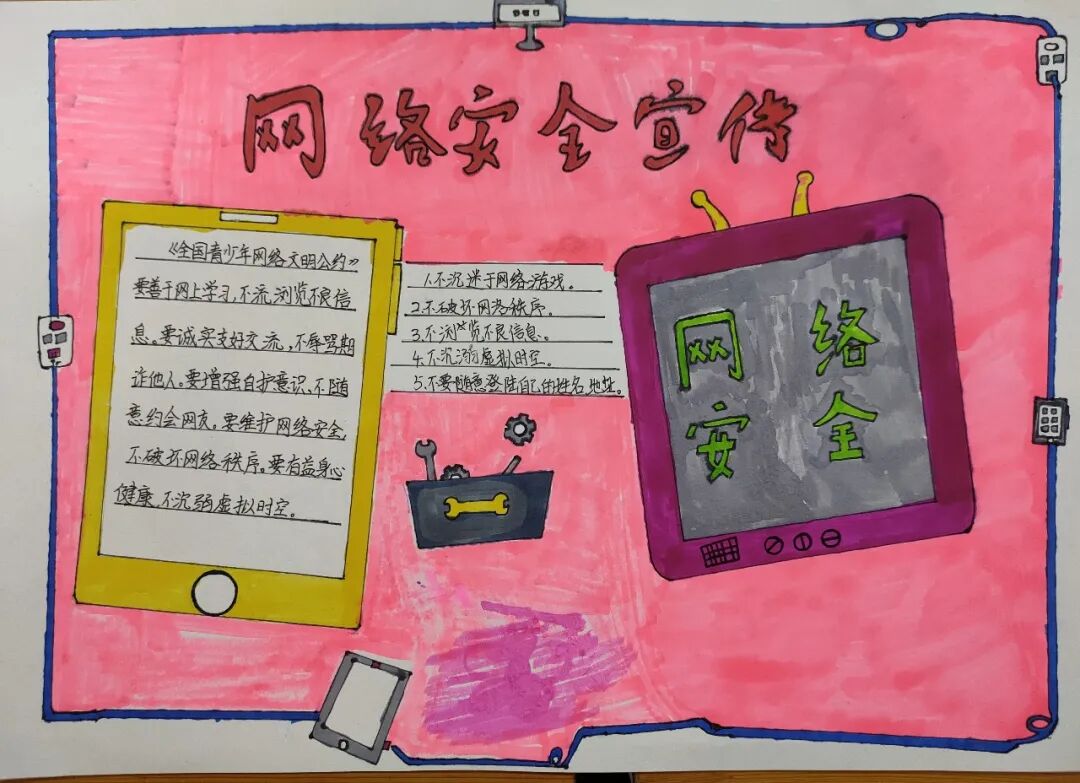 网络安全宣传
《全国青少年网络文明公约》
要善于网上学习,不流浏览不良信
息。要诚实支好交流,不辱骂期
诈他人。要增强自护意识,不随
意约会网友。要维护网络安全,
不破坏网络秩序。要有益身心
健康,不沉弱虚拟时空。
1.不沉迷于网络游戏。
2.不破坏网络秩序。
3.不浏览不良信息。
4.不沉溺虚拟时空。
5.不要随意登陆自己的姓名,地址。
网络
安全